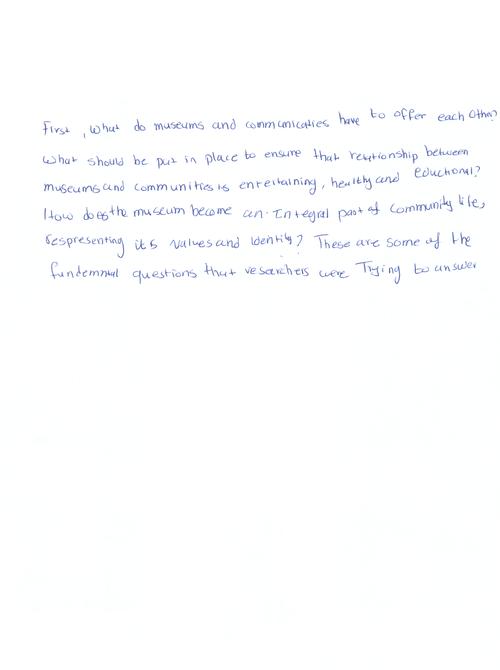 First, What do museums and communicaties have to offer each other?
What should be put in place to ensure that reationship between
museums and communities is entertaining, healthy and Eductional?
How does the museum become an Integral part of Community life,
respresenting its values and Identity? These are some of the
fundemntal questions that researchers were Trying to answer